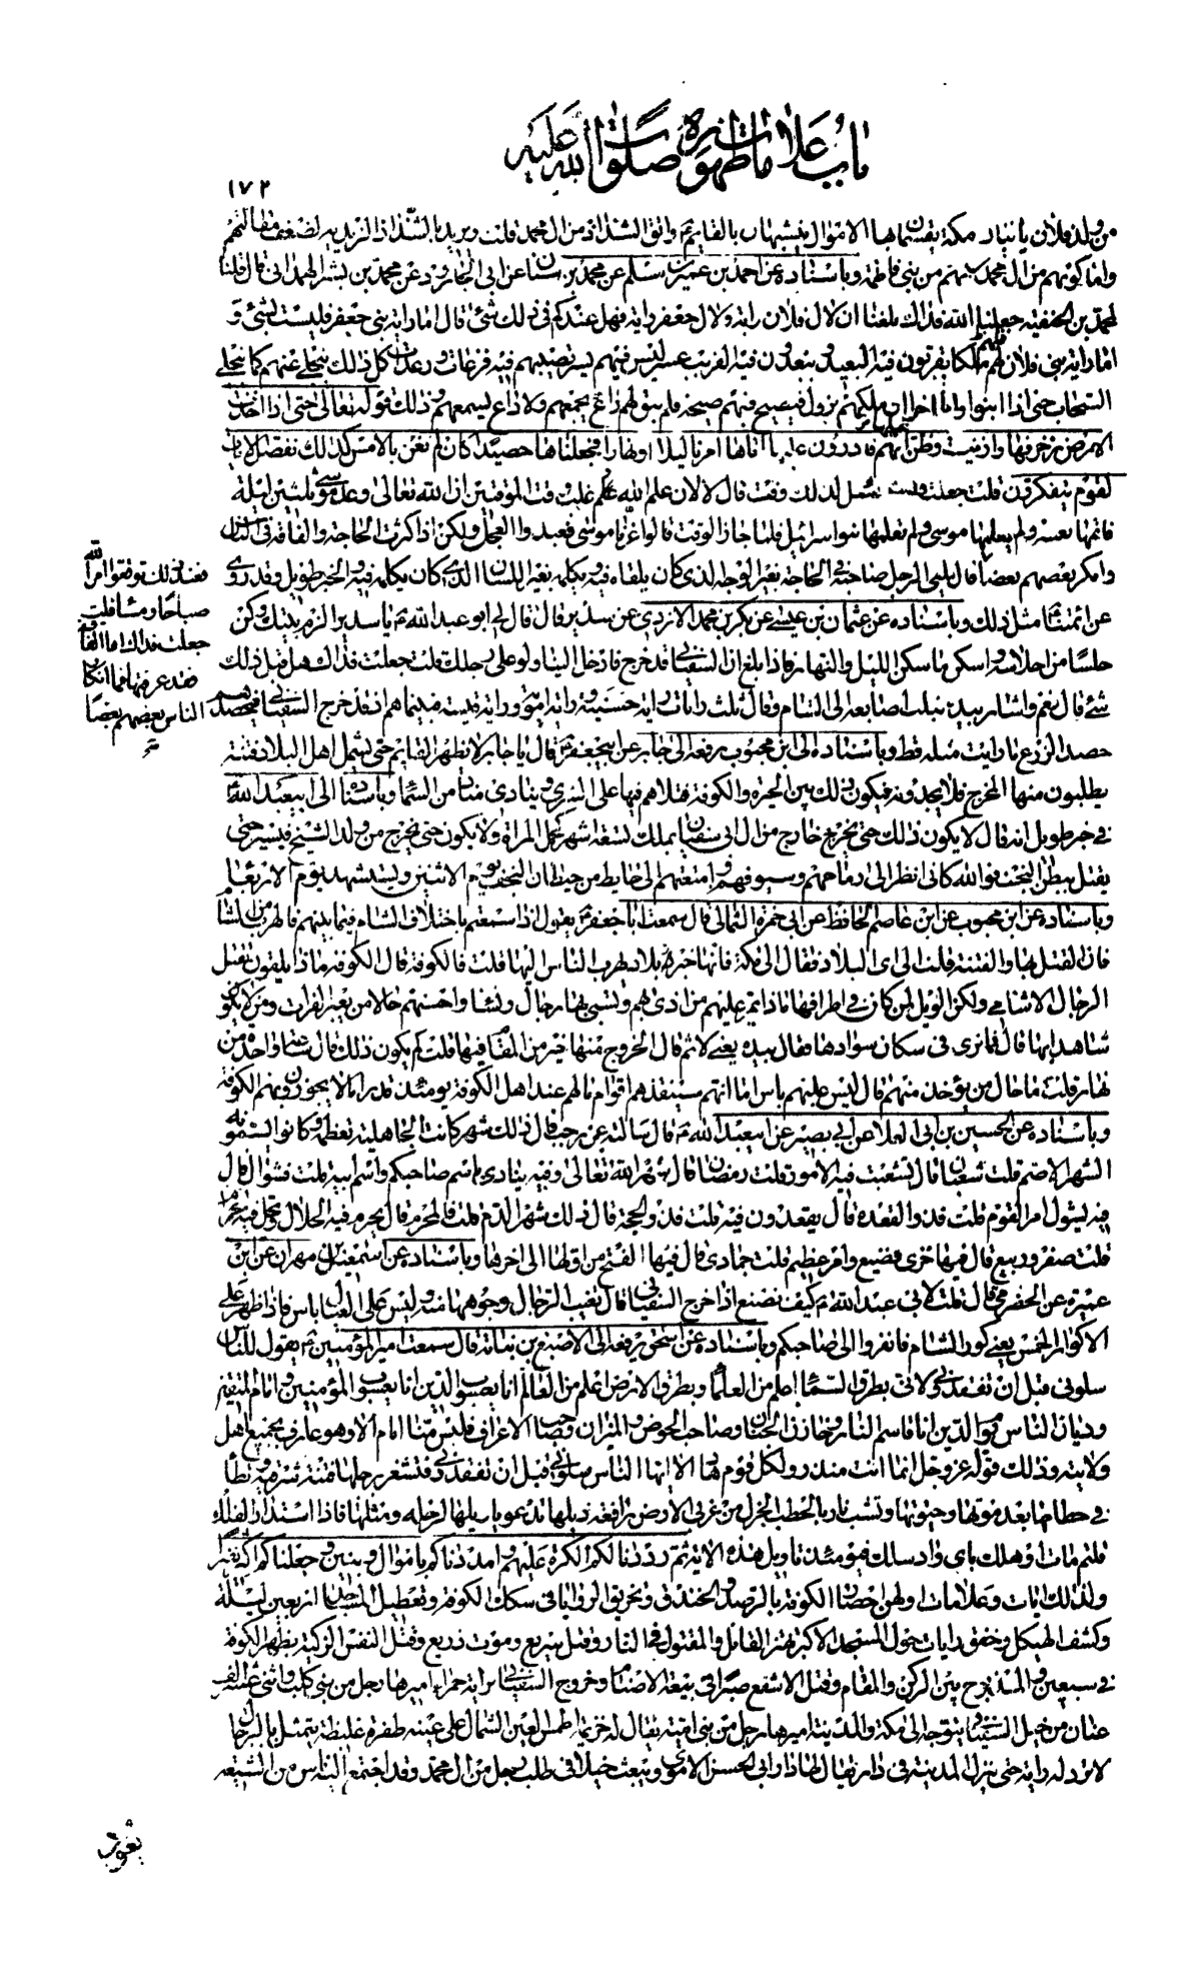 باب علامات ظهوره صلوات الله عليه
١٧٢
من ولد فلان يا بنيار مكة يقسمان بها الاموال يتشبهان بالقائم واتق الشذاذ من ال محمد قلت ويريد بالشذاذ الزيدية لضعف مقالتهم
واما كونهم من ال محمد لانهم من بني فاطمة وباسناده عن احمد بن عمير بن مسلم عن محمد بن سنان عن ابي الجارود عن محمد بن بشر الهمداني قال قلنا
لمحمد بن الحنفية جعلنا الله فداك بلغنا ان لال فلان راية ولال جعفر راية فهل عندكم في ذلك شئ قال اما راية بني جعفر فليست بشئ و
اما راية بني فلان فان لهم ملكا يقربون فيه البعيد ويبعدون فيه القريب عسر ليس فيهم يسر تصيبهم فيه فزعات ورعدات كل ذلك ينجلي عنهم كما ينجلي
السحاب حتى اذا امنوا واطمأنوا ان ملكهم لا يزول فيصيح فيهم صيحة فلم يبق لهم داع يجمعهم ولا داع يسمعهم وذلك قوله تعالى حتى اذا اخذت
الارض زخرفها وازينت وظن اهلها انهم قادرون عليها اتاها امرنا ليلا او نهارا فجعلناها حصيدا كان لم تغن بالامس كذلك نفصل الايات
لقوم يتفكرون قلت جعلت فداك هل لذلك وقت قال لا لان علم الله غلب وقت الموقتين ان الله تعالى وعد موسى ثلثين ليلة
فاتمها بعشر ولم يعلمها موسى ولم تعلمها بنو اسرائيل فلما جاز الوقت قالوا غرنا موسى فعبدوا العجل ولكن اذا كثرت الحاجة والفاقة في الناس
وانكر بعضهم بعضا قال يلقي الرجل صاحبه في الحاجة بغير الوجه الذي كان يلقاه فيه ويكلمه بغير اللسان الذي كان يكلمه فيه والخبر طويل وقد روي
عن ائمتنا مثل ذلك وباسناده عن عثمان بن عيسى عن بكر بن محمد الازدي عن سدير قال قال لي ابو عبد الله ع يا سدير الزم بيتك وكن
حلسا من احلاسه واسكن ما سكن الليل والنهار فاذا بلغ ان السفياني قد خرج فادخل الينا ولو على رجلك قلت جعلت فداك هل قبل ذلك
شئ قال نعم واشار بيده بثلث اصابعه الى الشام وقال ثلث رايات راية حسنية وراية اموية وراية قيسية فبينما هم اذ قد خرج السفياني فيحصدهم
حصد الزرع ما رايت مثله قط وباسناده الى ابن محبوب رفعه الى جابر عن ابي جعفر ع قال يا جابر لا يظهر القائم حتى يشمل اهل البلاد فتنة
يطلبون منها المخرج فلا يجدونه فيكون ذلك بين الحيرة والكوفة قتلاهم فيها على السرى وينادي مناد من السماء وباسناده الى ابي عبد الله
في خبر طويل انه قال لا يكون ذلك حتى يخرج خارج من ال ابي سفيان يملك تسعة اشهر كحمل المراة ولا يكون حتى يخرج من ولد الشيخ فيسير حتى
يقتل ببطن النجف فوالله كاني انظر الى رماحهم وسيوفهم وامتعتهم الى حايط من حيطان النجف يوم الاثنين ويستشهد يوم الاربعاء
وباسناده عن ابن محبوب عن ابن عاصم الحافظ عن ابي حمزة الثمالي قال سمعت ابا جعفر ع يقول اذا سمعتم باختلاف الشام فيما بينهم فالهرب من الشام
فان القتل بها والفتنة قلت الى اي البلاد فقال الى مكة فانها خير بلاد يهرب الناس اليها قلت فالكوفة قال الكوفة ماذا يلقون يقتل
الرجال الا شامي ولكن الويل لمن كان في اطرافها ماذا يمر عليهم من اذى بهم وتسبى بها رجال ونساء واحسنهم حالا من يعبر الفرات ومن لا يكون
شاهدا بها قال فما ترى في سكان سوادها فقال بيده يعني لا ثم قال الخروج منها خير من المقام فيها قلت كم يكون ذلك قال ساعة واحدة من
نهار قلت ما حال من يؤخذ منهم قال ليس عليهم باس اما انهم سينقذهم اقوام ما لهم عند اهل الكوفة يومئذ قدر اما لا يجوزون بهم الكوفة
وباسناده عن الحسين بن ابي العلا عن ابي بصير عن ابي عبد الله ع قال سالته عن رجب قال ذلك شهر كانت الجاهلية تعظمه وكانوا يسمونه
الشهر الاصم قلت شعبان قال تشعبت فيه الامور قلت رمضان قال شهر الله تعالى وفيه ينادى باسم صاحبكم واسم ابيه قلت فشوال قال
فيه يشول امر القوم قلت فذو القعدة قال يقعدون فيه قلت فذو الحجة قال ذلك شهر الدم قلت فالمحرم قال يحرم فيه الحلال ويحل فيه الحرام
قلت صفر وربيع قال فيها خزي فضيع وامر عظيم قلت جمادى قال فيها الفتح من اولها الى اخرها وباسناده عن اسمعيل بن مهران عن ابن
عميرة عن الحضرمي قال قلت لابي عبد الله ع كيف نصنع اذا خرج السفياني قال تغيب الرجال وجوهها منه وليس على العيال باس فاذا ظهر على
الاكوار الخمس يعني كور الشام فانفروا الى صاحبكم وباسناده عن اسحق يرفعه الى الاصبغ بن نباتة قال سمعت امير المؤمنين ع يقول للناس
سلوني قبل ان تفقدوني لاني بطرق السماء اعلم من العلماء وبطرق الارض اعلم من العالم انا يعسوب الدين انا يعسوب المؤمنين وامام المتقين
وديان الناس يوم الدين انا قاسم النار وخازن الجنان وصاحب الحوض والميزان وصاحب الاعراف فليس منا امام الا وهو عارف بجميع اهل
ولايته وذلك قوله عز وجل انما انت منذر ولكل قوم هاد الا ايها الناس سلوني قبل ان تفقدوني وتشغر برجلها فتنة شرقية وتطأ
في خطامها بعد موتها وحيوتها وتشب نار بالحطب الجزل من غربي الارض رافعة ذيلها تدعو يا ويلها لرحله ومثلها فاذا استدار الفلك
قلتم مات او هلك باي واد سلك فيومئذ تاويل هذه الاية ثم رددنا لكم الكرة عليهم وامددناكم باموال وبنين وجعلناكم اكثر نفيرا
ولذلك ايات وعلامات اولهن احصار الكوفة بالرصد والخندق وتخريق الروايا في سكك الكوفة وتعطيل المساجد اربعين ليلة
وكشف الهيكل وخفق رايات حول المسجد الاكبر تهتز القاتل والمقتول في النار وقتل سريع وموت ذريع وقتل النفس الزكية بظهر الكوفة
في سبعين والمذبوح بين الركن والمقام وقتل الاسقع صبرا في بيعة الاصنام وخروج السفياني براية حمراء اميرها رجل من بني كلب واثني عشر الف
عنان من خيل السفياني يتوجه الى مكة والمدينة اميرها رجل من بني امية يقال له خزيمة اطمس العين الشمال على عينه ظفرة غليظة يتمثل بالرجال
لا ترد له راية حتى ينزل المدينة في دار يقال لها دار ابي الحسن الاموي ويبعث خيلا في طلب رجل من ال محمد وقد اجتمع اليه ناس من الشيعة
فعند ذلك توقعوا امر الله
صباحا ومساء قلت
جعلت فداك اما الفاقة
فقد عرفتها فما انكار
الناس بعضهم بعضا
يعود